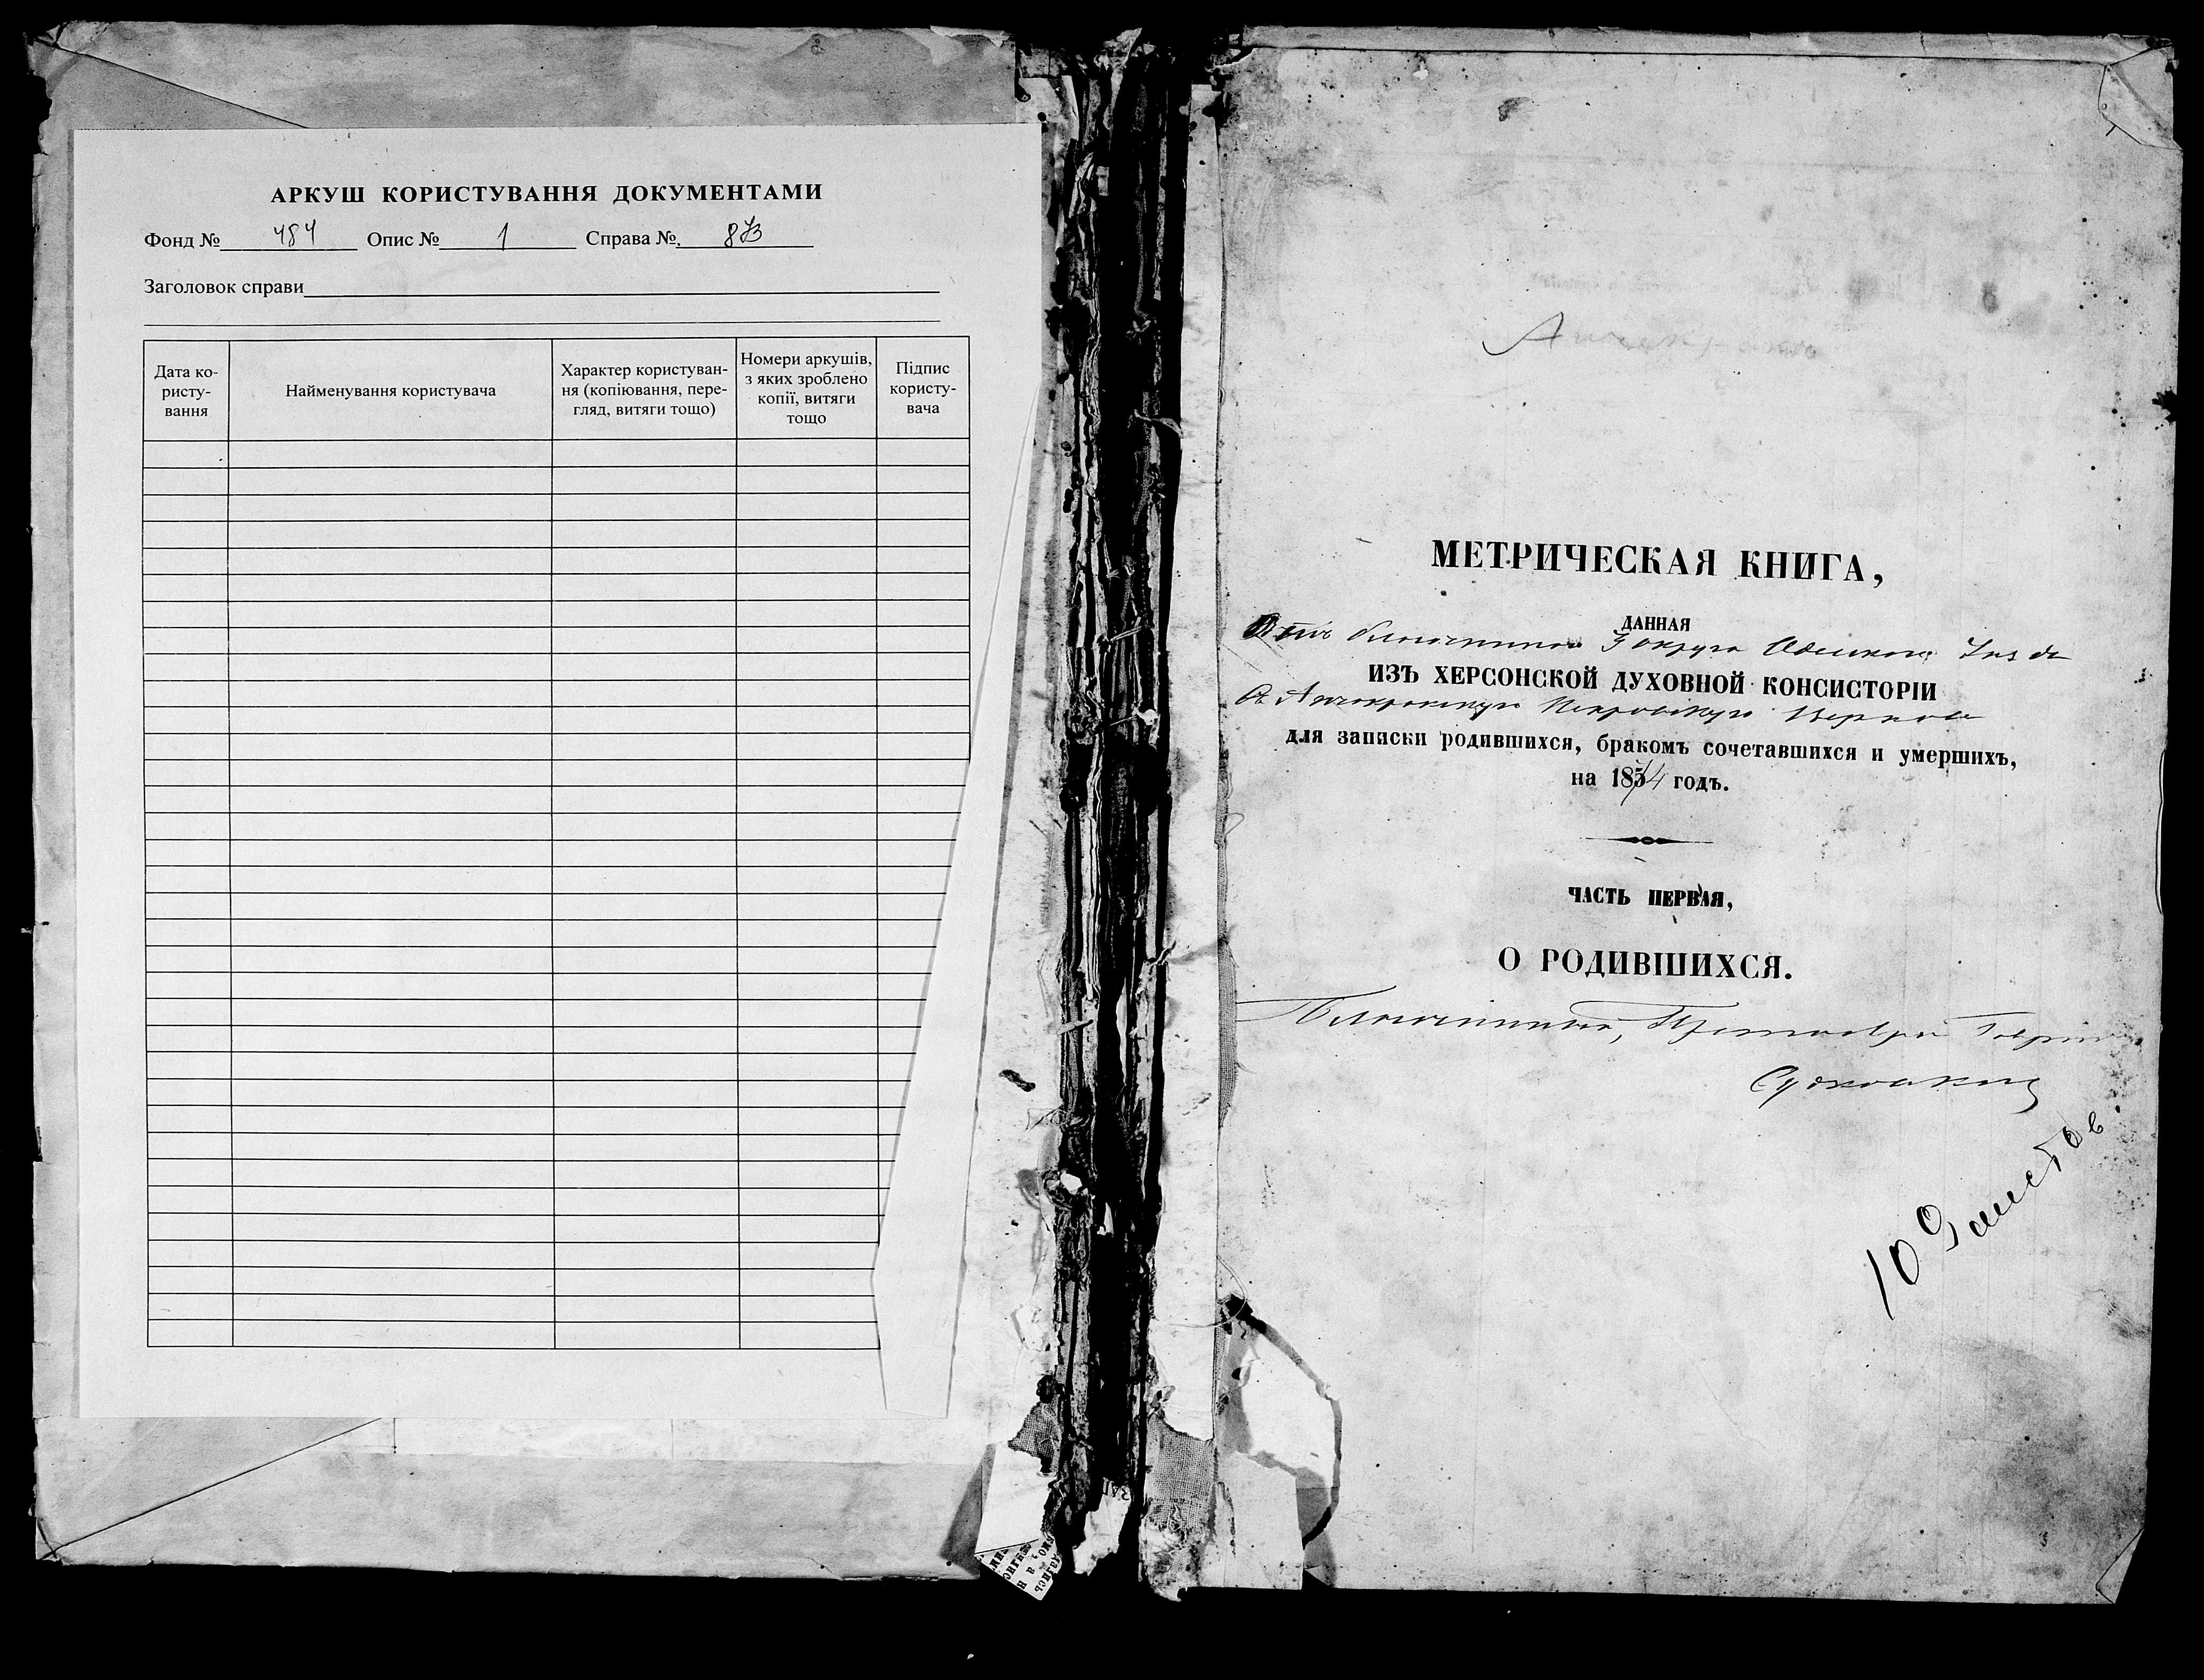 АРКУШ КОРИСТУВАННЯ ДОКУМЕНТАМИ
Фонд № 484 Опис № 1 Справа № 873
Заголовок справи
Дата ко-
ристу-
вання
Найменування користувача
Характер користуван-
ня (копіювання, пере-
гляд, витяги тощо)
Номери аркушів,
з яких зроблено
копії, витяги
тощо
Підпис
користу-
вача
МЕТРИЧЕСКАЯ КНИГА,
ДАННАЯ
Отъ благочиннаго 3 округа Одесскаго
ИЗЪ ХЕРСОНСКОЙ ДУХОВНОЙ КОНСИСТОРІИ
Въ Покровскую Церковь
для записки родившихся, бракомъ сочетавшихся и умершихъ,
на 1874 годъ.
ЧАСТЬ ПЕРВАЯ,
О РОДИВШИХСЯ.
Благочинный, Протоіерей
109 листов